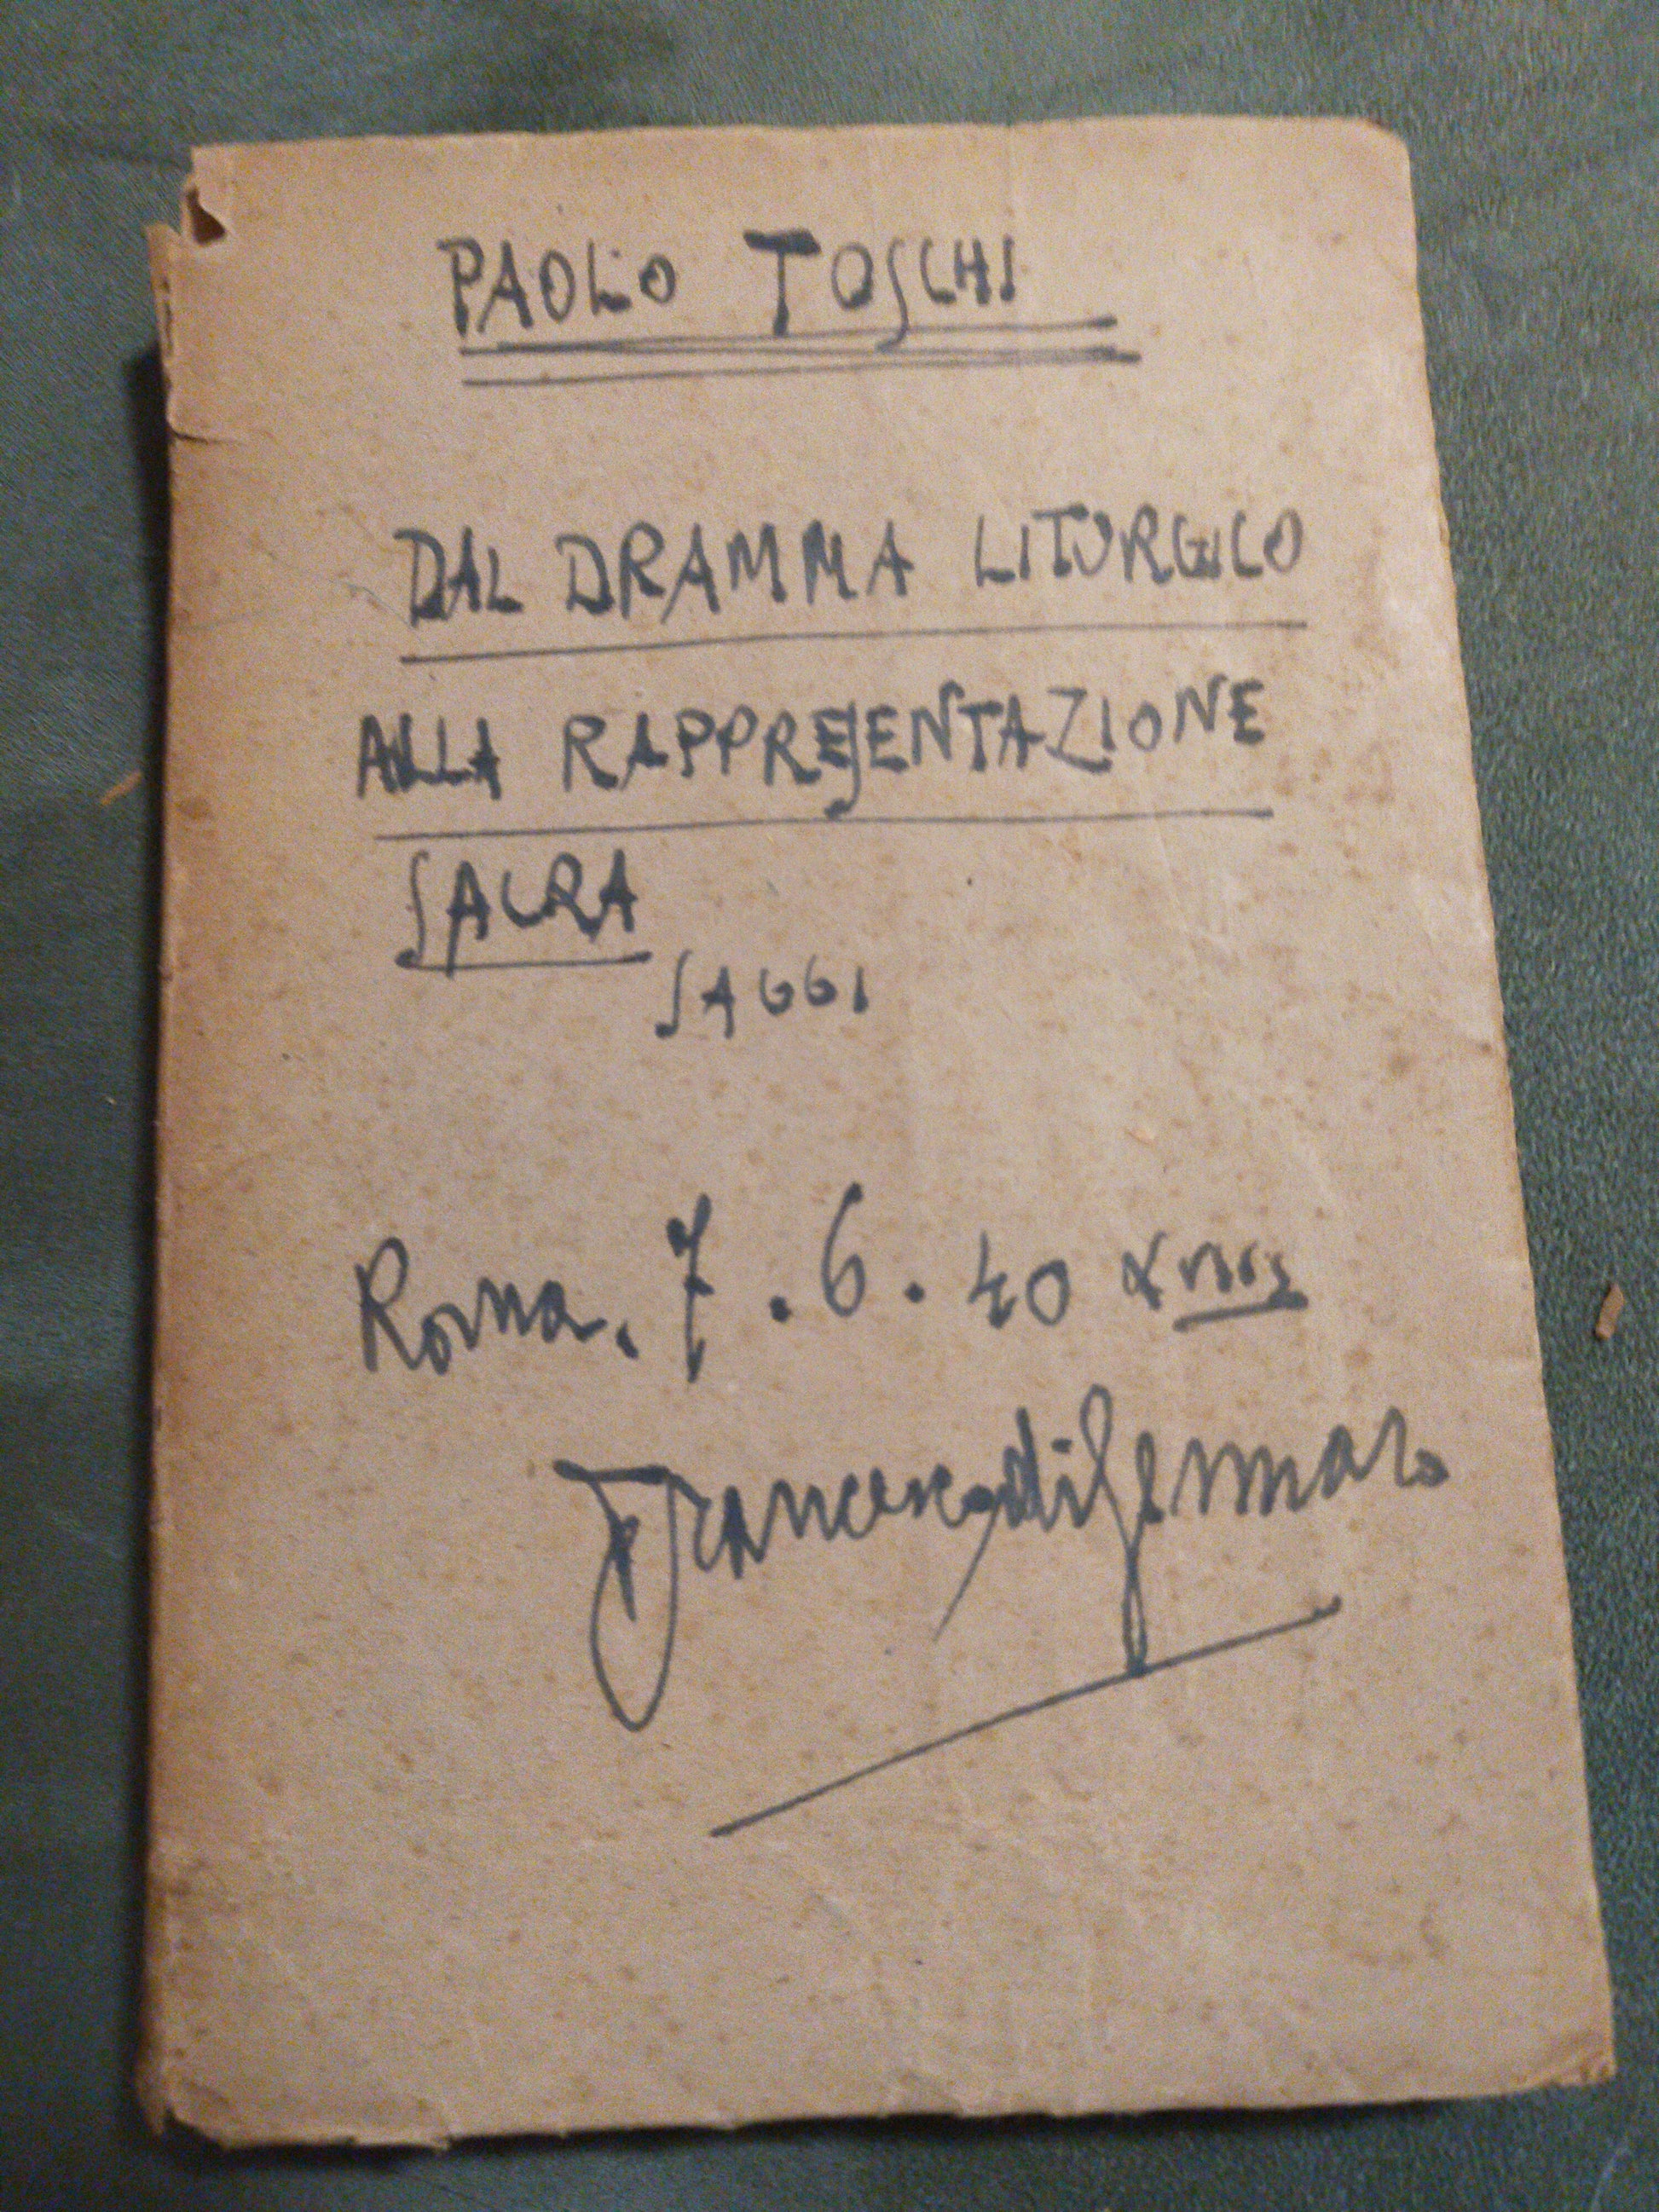 PAOLO TOSCHI
DAL DRAMMA LITURGICO
ALLA RAPPRESENTAZIONE
SACRA
SAGGI
Roma. 7.6.40 XVIII
Francesco di Gennaro